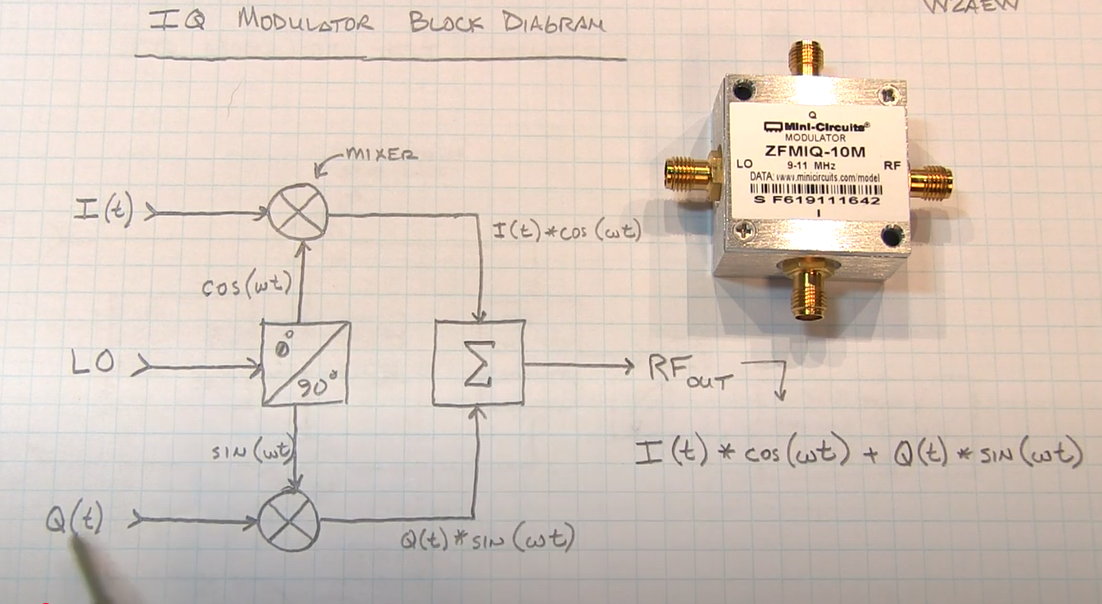 IQ MODULATOR BLOCK DIAGRAM
W2AEW
MIXER
I(t)
I(t)*cos(ωt)
cos(ωt)
LO
0°
90°
Σ
RF OUT
I(t)*cos(ωt) + Q(t)*sin(ωt)
sin(ωt)
Q(t)
Q(t)*sin(ωt)
Q
Mini-Circuits®
MODULATOR
ZFMIQ-10M
LO 9-11 MHz RF
DATA: www.minicircuits.com/model
S F619111642
I